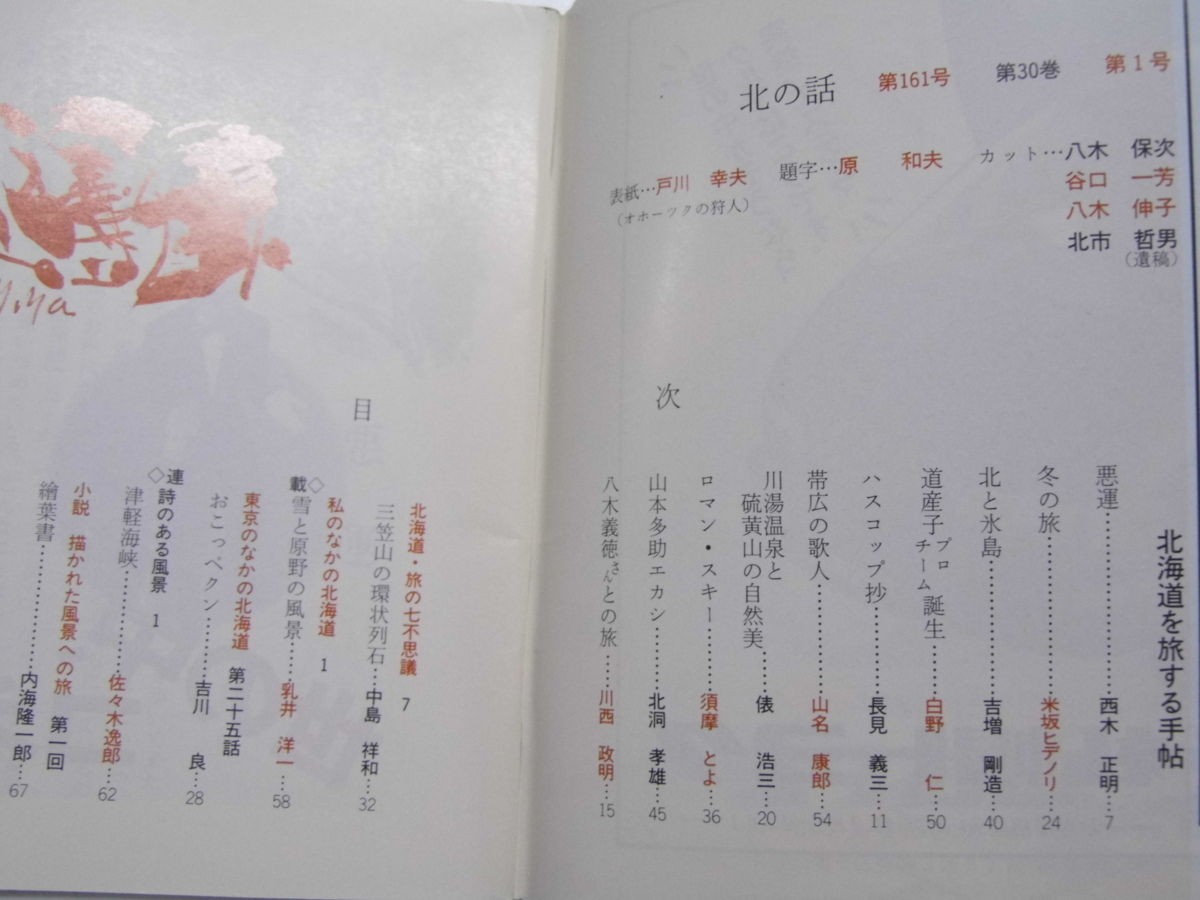 北の話 第161号 第30巻 第1号
表紙…戸川 幸夫 題字…原 和夫 カット…八木 保次
(オホーツクの狩人)
谷口 一芳
八木 伸子
北市 哲男
(遺稿)
北海道を旅する手帖
目次
悪運…………西木 正明…7
冬の旅…………米坂ヒデノリ…24
北と氷島…………吉増 剛造…40
道産子プロチーム誕生……白野 仁…50
ハスコップ抄…………長見 義三…11
帯広の歌人…………山名 康郎…54
川湯温泉と
硫黄山の自然美……俵 浩三…20
ロマン・スキー………須摩 とよ…36
山本多助エカシ………北洞 孝雄…45
八木義徳さんとの旅……川西 政明…15
北海道・旅の七不思議 7
三笠山の環状列石…中島 祥和…32
◇連載◇
私のなかの北海道 1
雪と原野の風景……乳井 洋一…58
東京のなかの北海道 第二十五話
おこっペクン………吉川 良…28
詩のある風景 1
津軽海峡…………佐々木逸郎…62
小説 描かれた風景への旅 第一回
繪葉書…………内海隆一郎…67